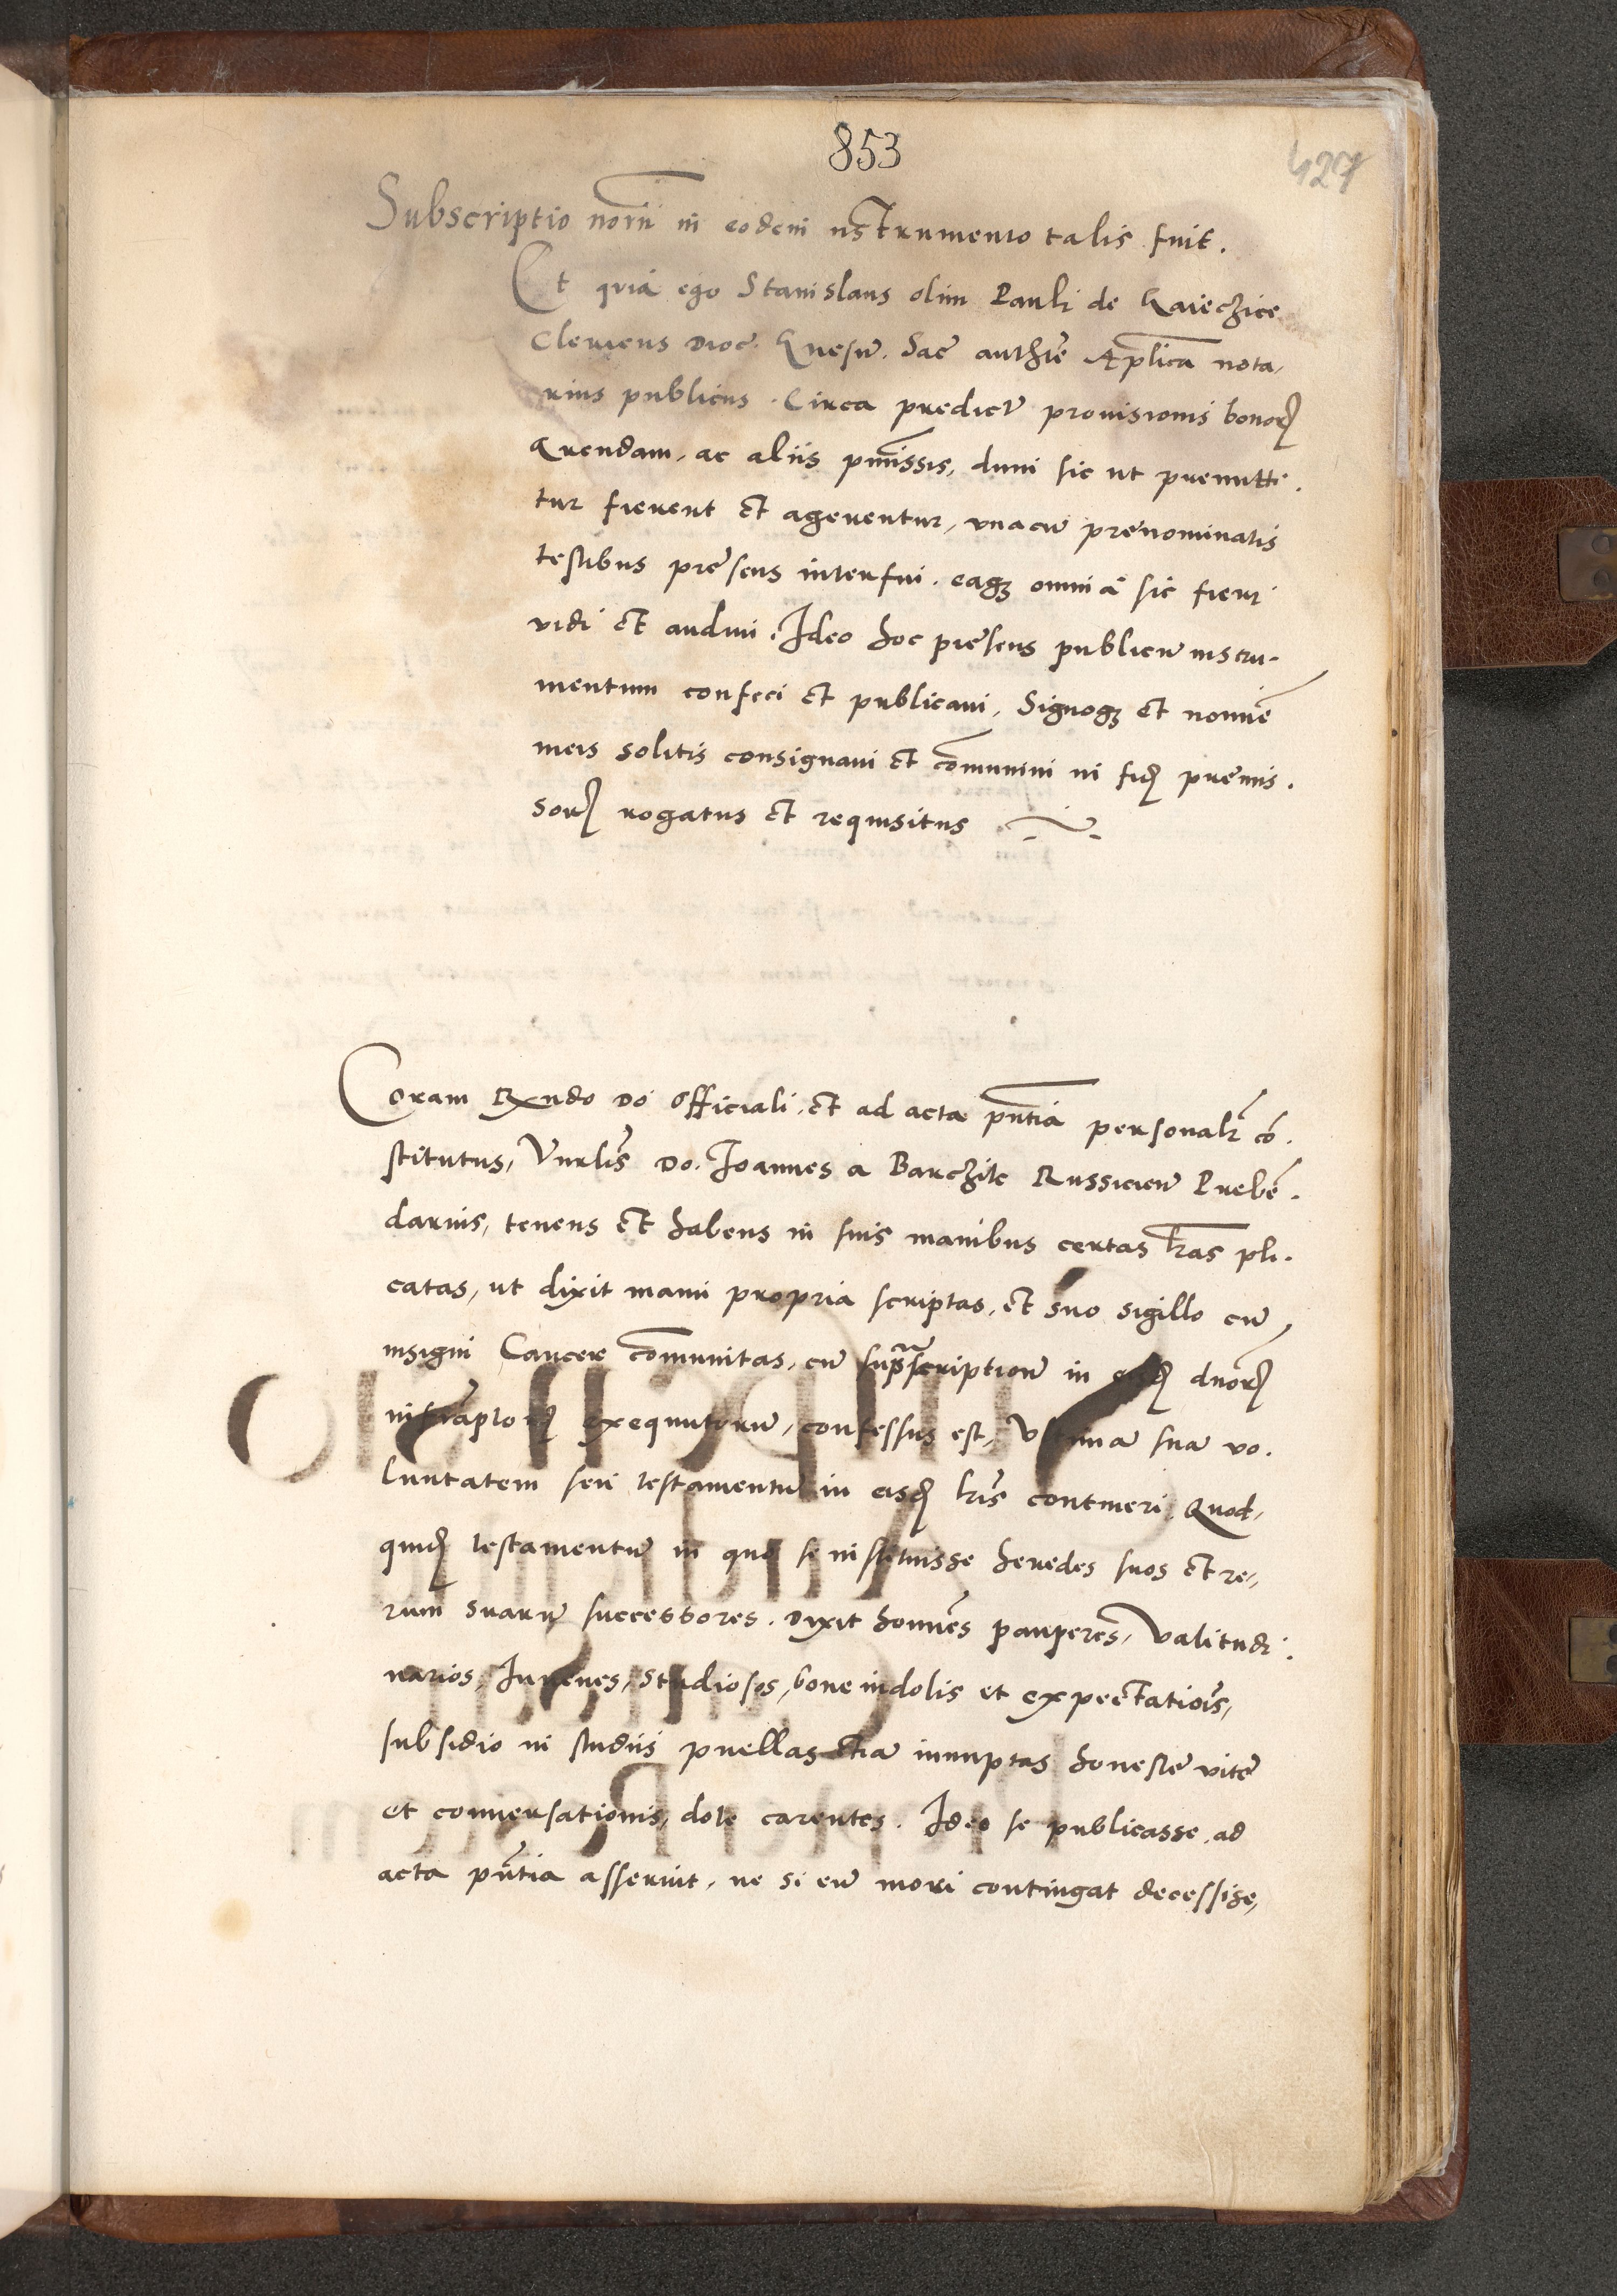 853
427
Subscriptio notarii in eodem instrumento talis fuit.
Et quia ego Stanislaus olim Pauli de Gaiechzice
Clericus Dioc. Gnesn. Sac. authte Aplica nota,
rius publicus. Circa predict provisionis bonor
Arendam, ac aliis pmissis, dum sic ut premitti.
tur fierent et agerentur, vnacu prenominatis
testibus presens interfui. eaq omnia sic fieri
vidi et audiui. Ideo hoc presens publicu instru-
mentum confeci et publicaui, Signoq et nomine
meis solitis consignaui et comuniui in fid premis.
sor rogatus et requisitus
Coram Rndo Do Officiali, et ad acta pntia personalr co.
stitutus, Vnrlis Do. Joannes a Barchzitc Russicien Preben.
darius, tenens et habens in suis manibus certas lras pli.
catas, ut dixit manu propria scriptas, et suo sigillo cu
insigni Cancer comunitas, cu suprascriptione in eisd duor
infraptor exequutoru, confessus est, Vltima sua vo.
luntatem seu testamentu in eisd lris contineri. Quod,
quid testamentu in quo se instituisse heredes suos et re,
rum suaru successores. Dixit homines pauperes, Valitudi.
narios, Juuenes, studiosos, bone indolis et expectationis,
subsidio in studiis puellas etia innuptas honeste vite
et conuersationis, dote carentes. Ideo se publicasse, ad
acta pntia asseruit, ne si eu mori contingat decessise,